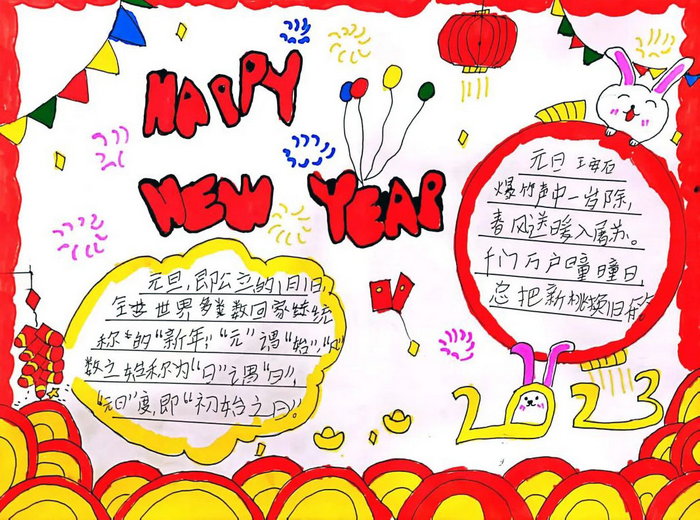 HAPPY
NEW YEAR
元旦 王安石
爆竹声中一岁除,
春风送暖入屠苏。
千门万户曈曈日,
总把新桃换旧符
元旦,即公立的1月1日,
全世世界多数国家
称的“新年”,“元”谓“始”,
数之始称为“日”谓“日”,
“元日”度,即“初始之日”。
2023